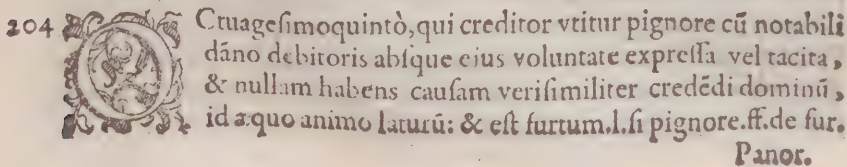 204 OCtuagesimoquintò, qui creditor vtitur pignore cũ notabili
dãno debitoris absque eius voluntate expressa vel tacita,
& nullam habens causam verisimiliter credẽdi dominũ,
id æquo animo laturũ: & est furtum.l.si pignore.ff.de fur.
Panor.